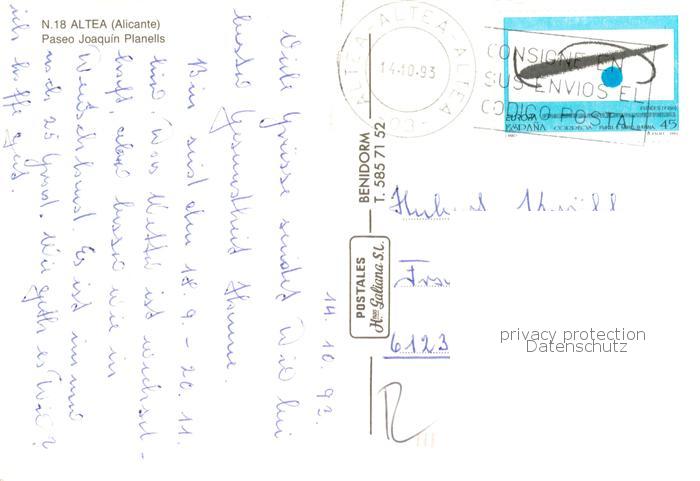 N.18 ALTEA (Alicante)
Paseo Joaquín Planells
14.10.92
Viele Grüsse sendet Dir bei
bester Gesundheit Hanne.
Bin seit dem 18.9. - 20.11.
hier. Das Wetter ist wechsel-
haft, aber besser wie in
Deutschland. Es ist immer
noch 25 Grad. Wie geht es Dir?
ich hoffe gut.
POSTALES
Hnos Galiana S.L.
BENIDORM
T. 585 71 52
ALTEA-ALTEA-ALTEA
14-10-93
CONSIGNE EN
SUS ENVIOS EL
CODIGO POSTAL
EUROPA
ESPAÑA
45
6123
privacy protection
Datenschutz